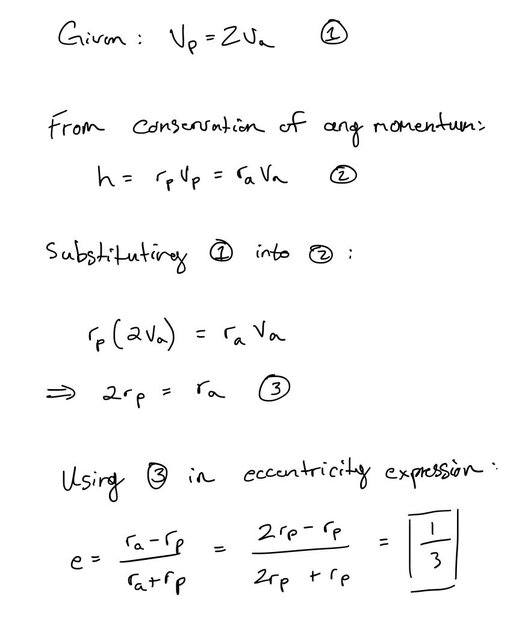 Given: Vp = 2Va ①
From conservation of ang momentum:
h = rp Vp = ra Va ②
Substituting ① into ②:
rp(2Va) = ra Va
⇒ 2rp = ra ③
Using ③ in eccentricity expression:
e = (ra - rp)/(ra + rp) = (2rp - rp)/(2rp + rp) = 1/3